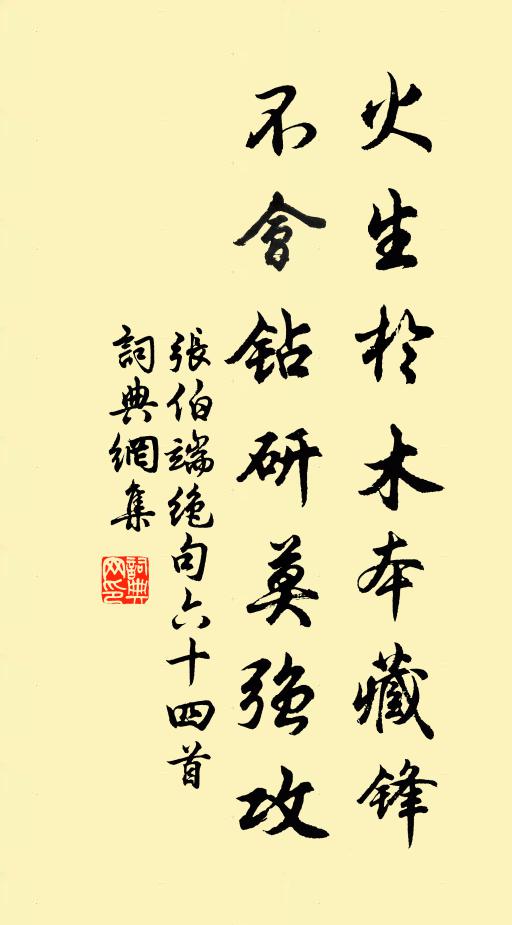 火生於木本藏鋒
不會鉆研莫強攻
張伯端絶句六十四首
詞典網集
詞典網印